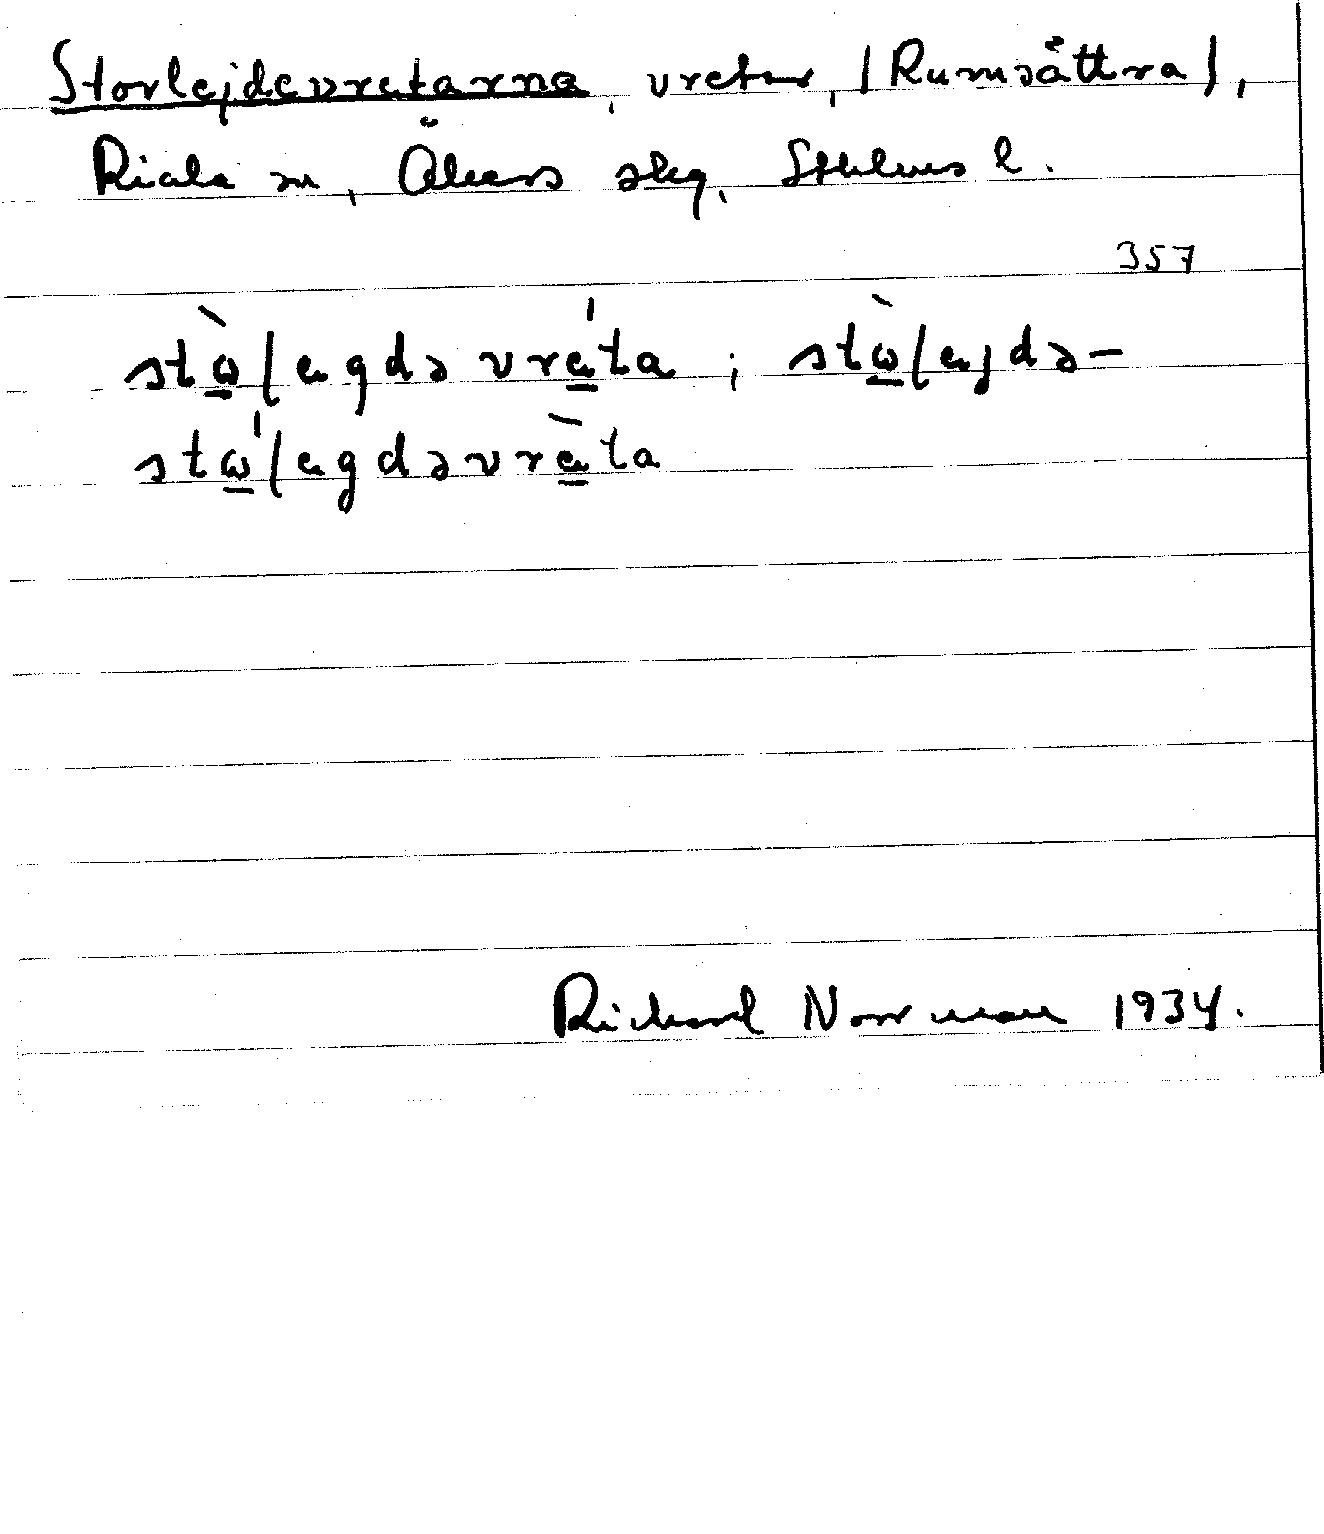 Storlejdevretarna, vretar, (Rumsättra),
Riala sn, Åkers skg, Sthlms l.
357
stὼḷägdə vrä́ta ; stὼḷäjdə-
stώḷägdəvrä̀ta
Richard Norrman 1934.